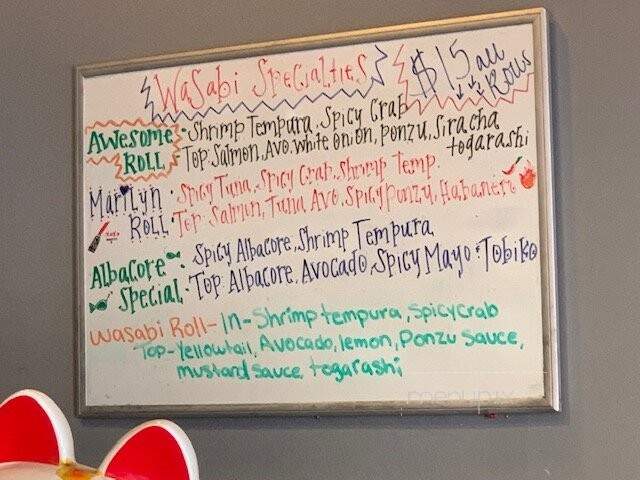 Wasabi Specialties
$15 all Rolls
Awesome Roll • Shrimp Tempura, Spicy Crab
Top: Salmon, Avo, white onion, ponzu, Siracha
togarashi
Marilyn Roll • Spicy Tuna, Spicy Crab, Shrimp Temp.
Top: Salmon, Tuna Avo, Spicy ponzu, Habanero
Albacore Special: Spicy Albacore, Shrimp Tempura
Top: Albacore, Avocado, Spicy Mayo • Tobiko
Wasabi Roll - In - Shrimp tempura, spicy crab
Top - Yellowtail, Avocado, lemon, Ponzu Sauce,
mustard sauce, togarashi
menupix